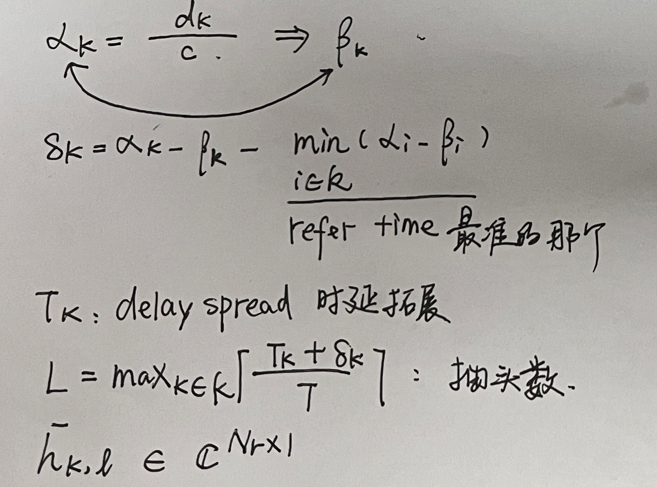 α_K = d_K / c. ⇒ β_K
δ_K = α_K - β_K - min(α_i - β_i)
i∈K
refer time 最准的那个
T_K: delay spread 时延拓展
L = max_{K∈K} ⌈(T_K + δ_K) / T⌉ : 抽头数.
h̄_{K,l} ∈ ℂ^{Nr×1}